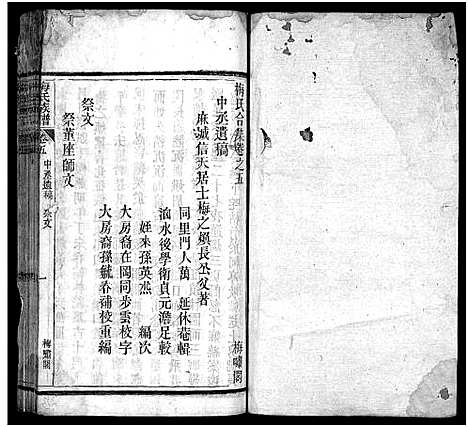 梅氏合集卷之五
梅嘯閣
中丞遺稿
麻誠信天居士梅之煥長公父著
同里門人萬 延休菴輯
滴水後學衛貞元澹足較
姪來孫英杰 編次
大房裔在岡同步雲校字
大房裔孫毓春補校重編
祭文
祭董座師文
梅氏族譜
卷五
中丞遺稿
祭文
一
梅嘯閣